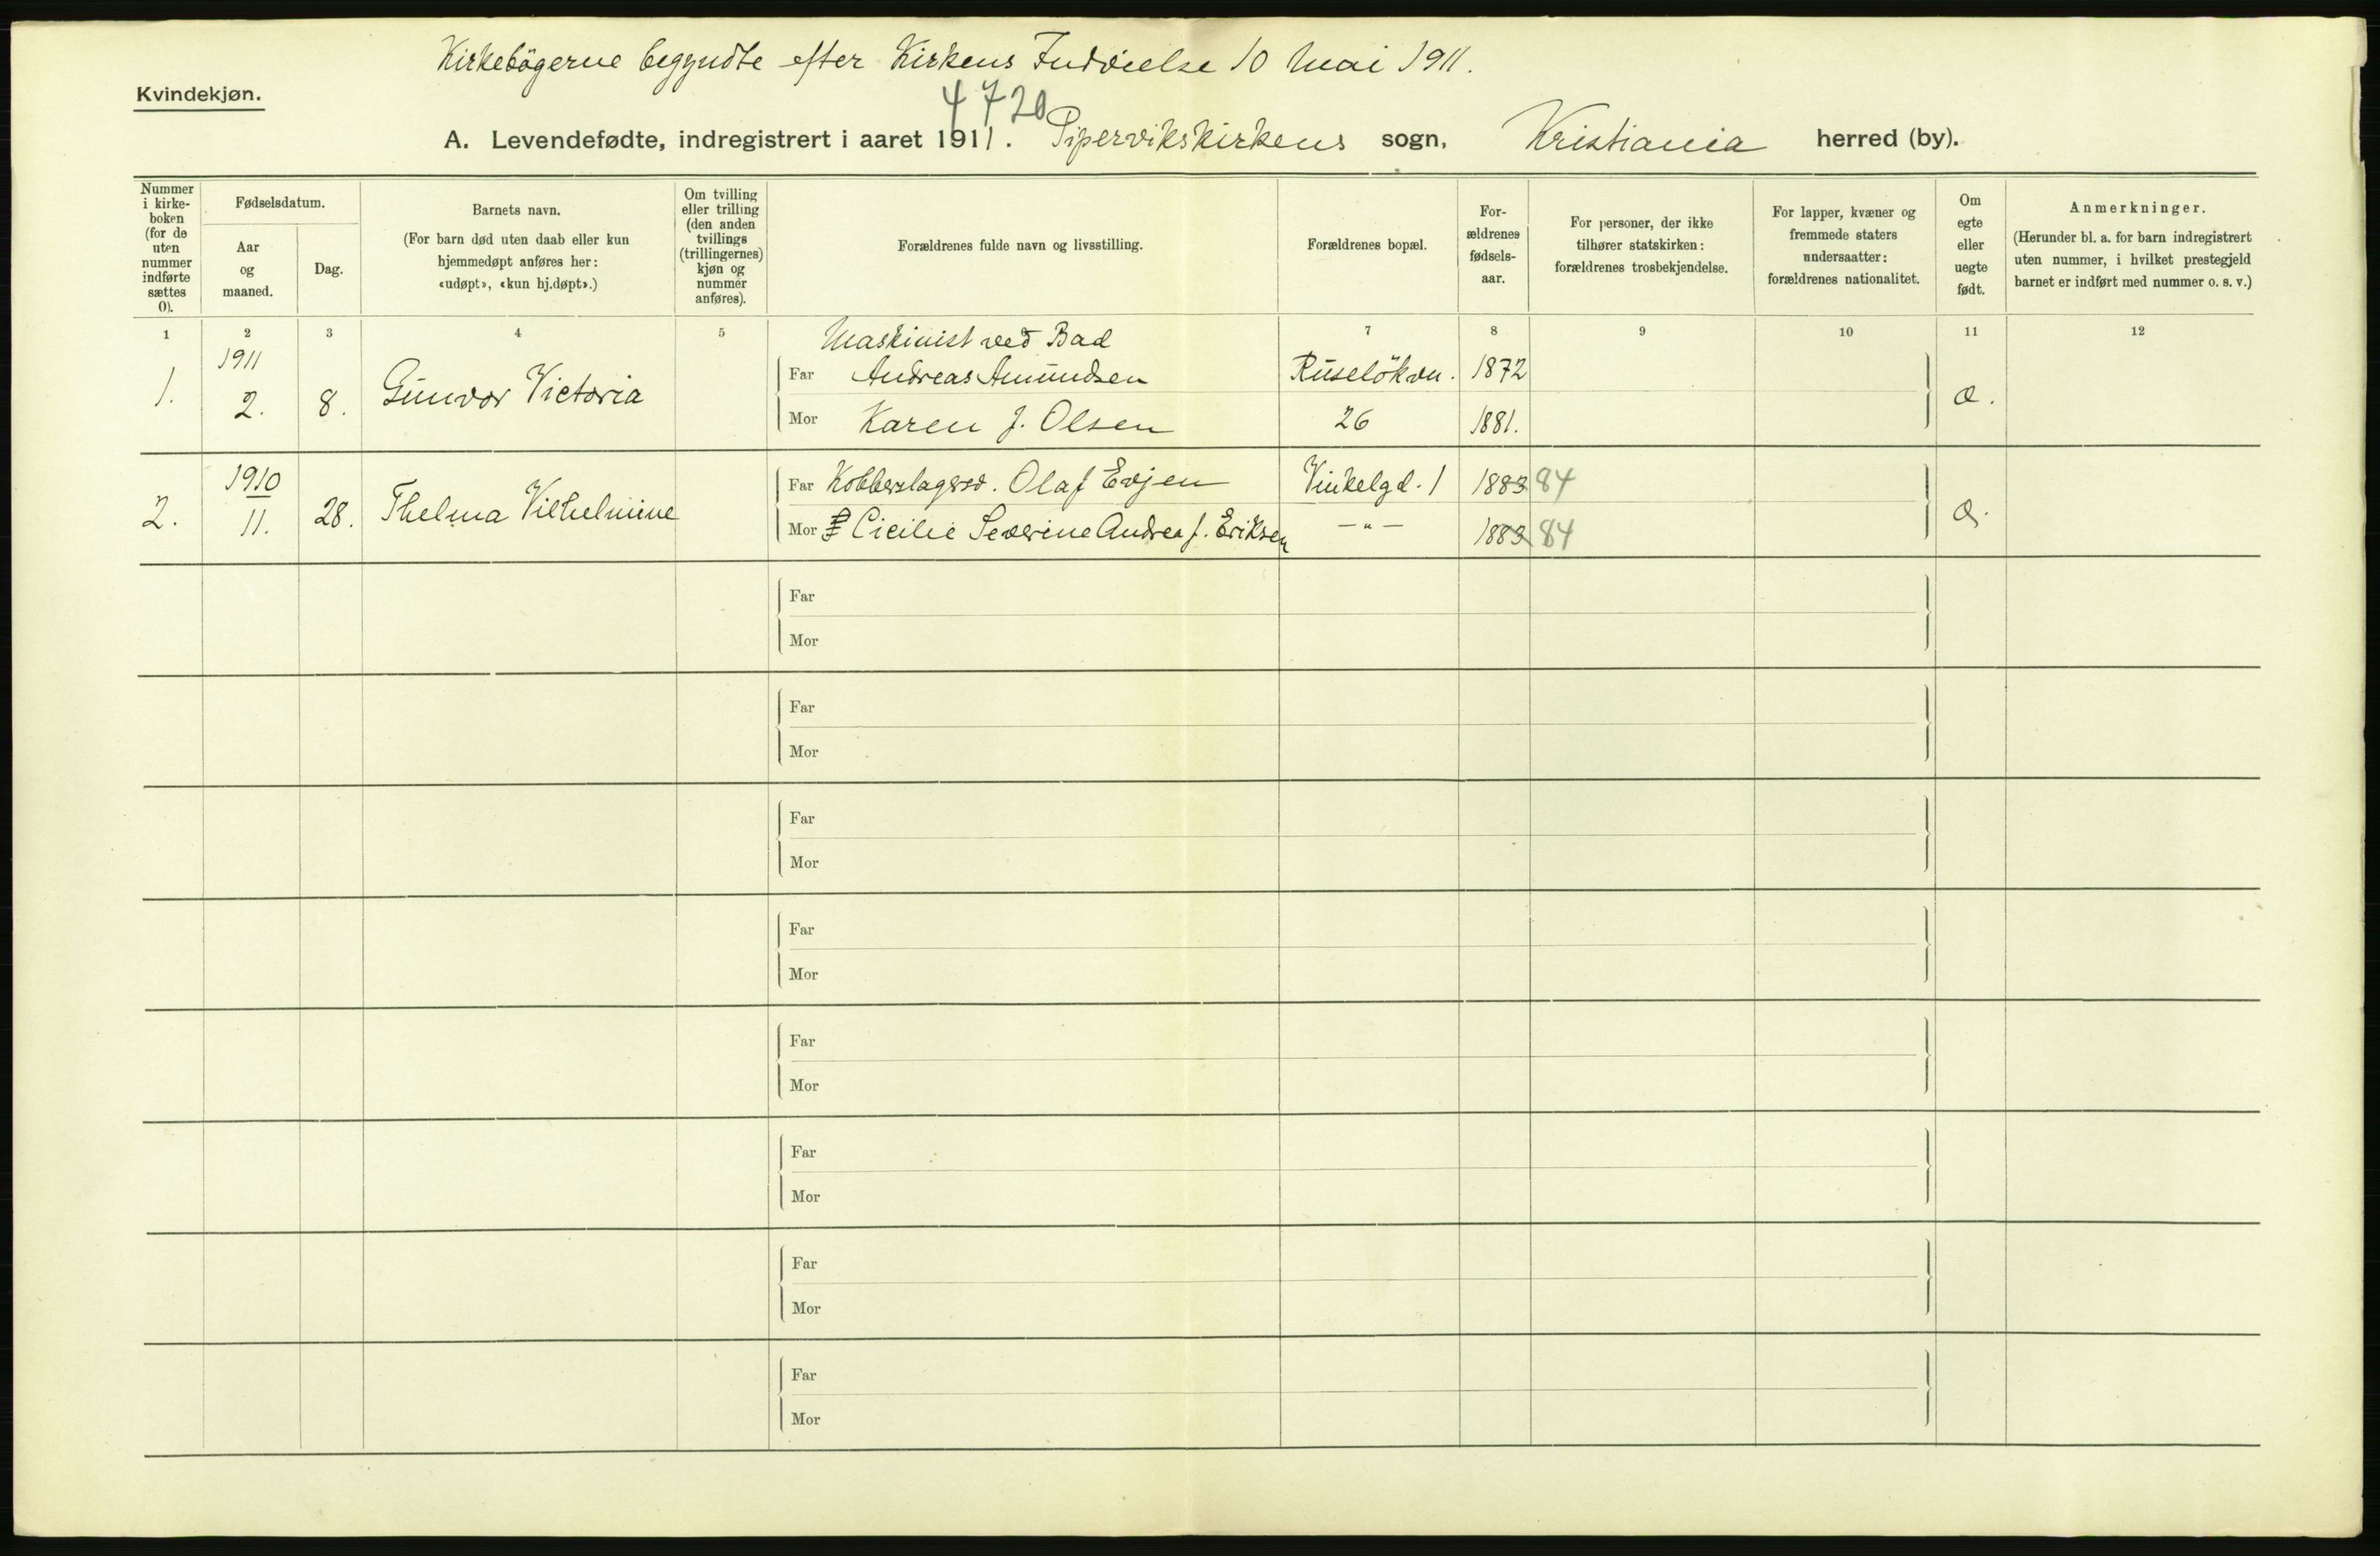 Kirkebögerne begyndte efter Kirkens Indvielse 10 Mai 1911.
Kvindekjøn.
4720
A. Levendefødte, indregistrert i aaret 1911. Pipervikskirkens sogn, Kristiania herred (by).
Nummer i kirke-boken (for de uten nummer indførte sættes 0).
Fødselsdatum.
Aar og maaned.
Dag.
Barnets navn.
(For barn død uten daab eller kun hjemmedøpt anføres her: «udøpt», «kun hj.døpt».)
Om tvilling eller trilling (den anden tvillings (trillingernes) kjøn og nummer anføres).
Forældrenes fulde navn og livsstilling.
Forældrenes bopæl.
For-ældrenes fødsels-aar.
For personer, der ikke tilhører statskirken: forældrenes trosbekjendelse.
For lapper, kvæner og fremmede staters undersaatter: forældrenes nationalitet.
Om egte eller uegte født.
Anmerkninger.
(Herunder bl. a. for barn indregistrert uten nummer, i hvilket prestegjeld barnet er indført med nummer o. s. v.)
1 2 3 4 5 7 8 9 10 11 12
Maskinist ved Bad
1911
1. 2. 8. Gunvor Victoria
Far Andreas Amundsen Ruselökvn. 1872
Mor Karen f. Olsen 26 1881.
æ.
1910
2. 11. 28. Thelma Vilhelmine
Far Kobberslagersv. Olaf Evjen Vinkelgd. 1 1883 84
Mor Cicilie Severine Andrea f. Eriksen —"— 1883 84
æ.
Far
Mor
Far
Mor
Far
Mor
Far
Mor
Far
Mor
Far
Mor
Far
Mor
Far
Mor